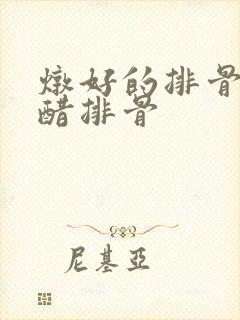 燉好的排骨
醋排骨
尼基亞